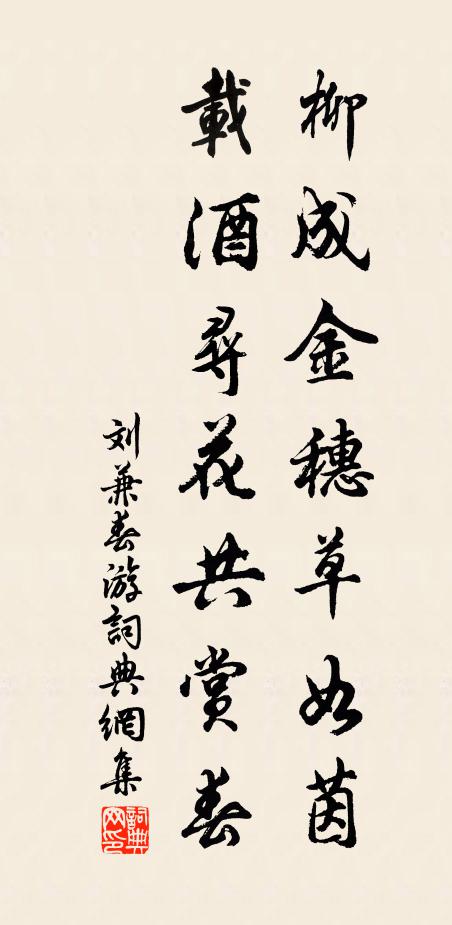 柳成金穗草如茵
載酒尋花共賞春
刘兼春游詞典網集
詞典網印